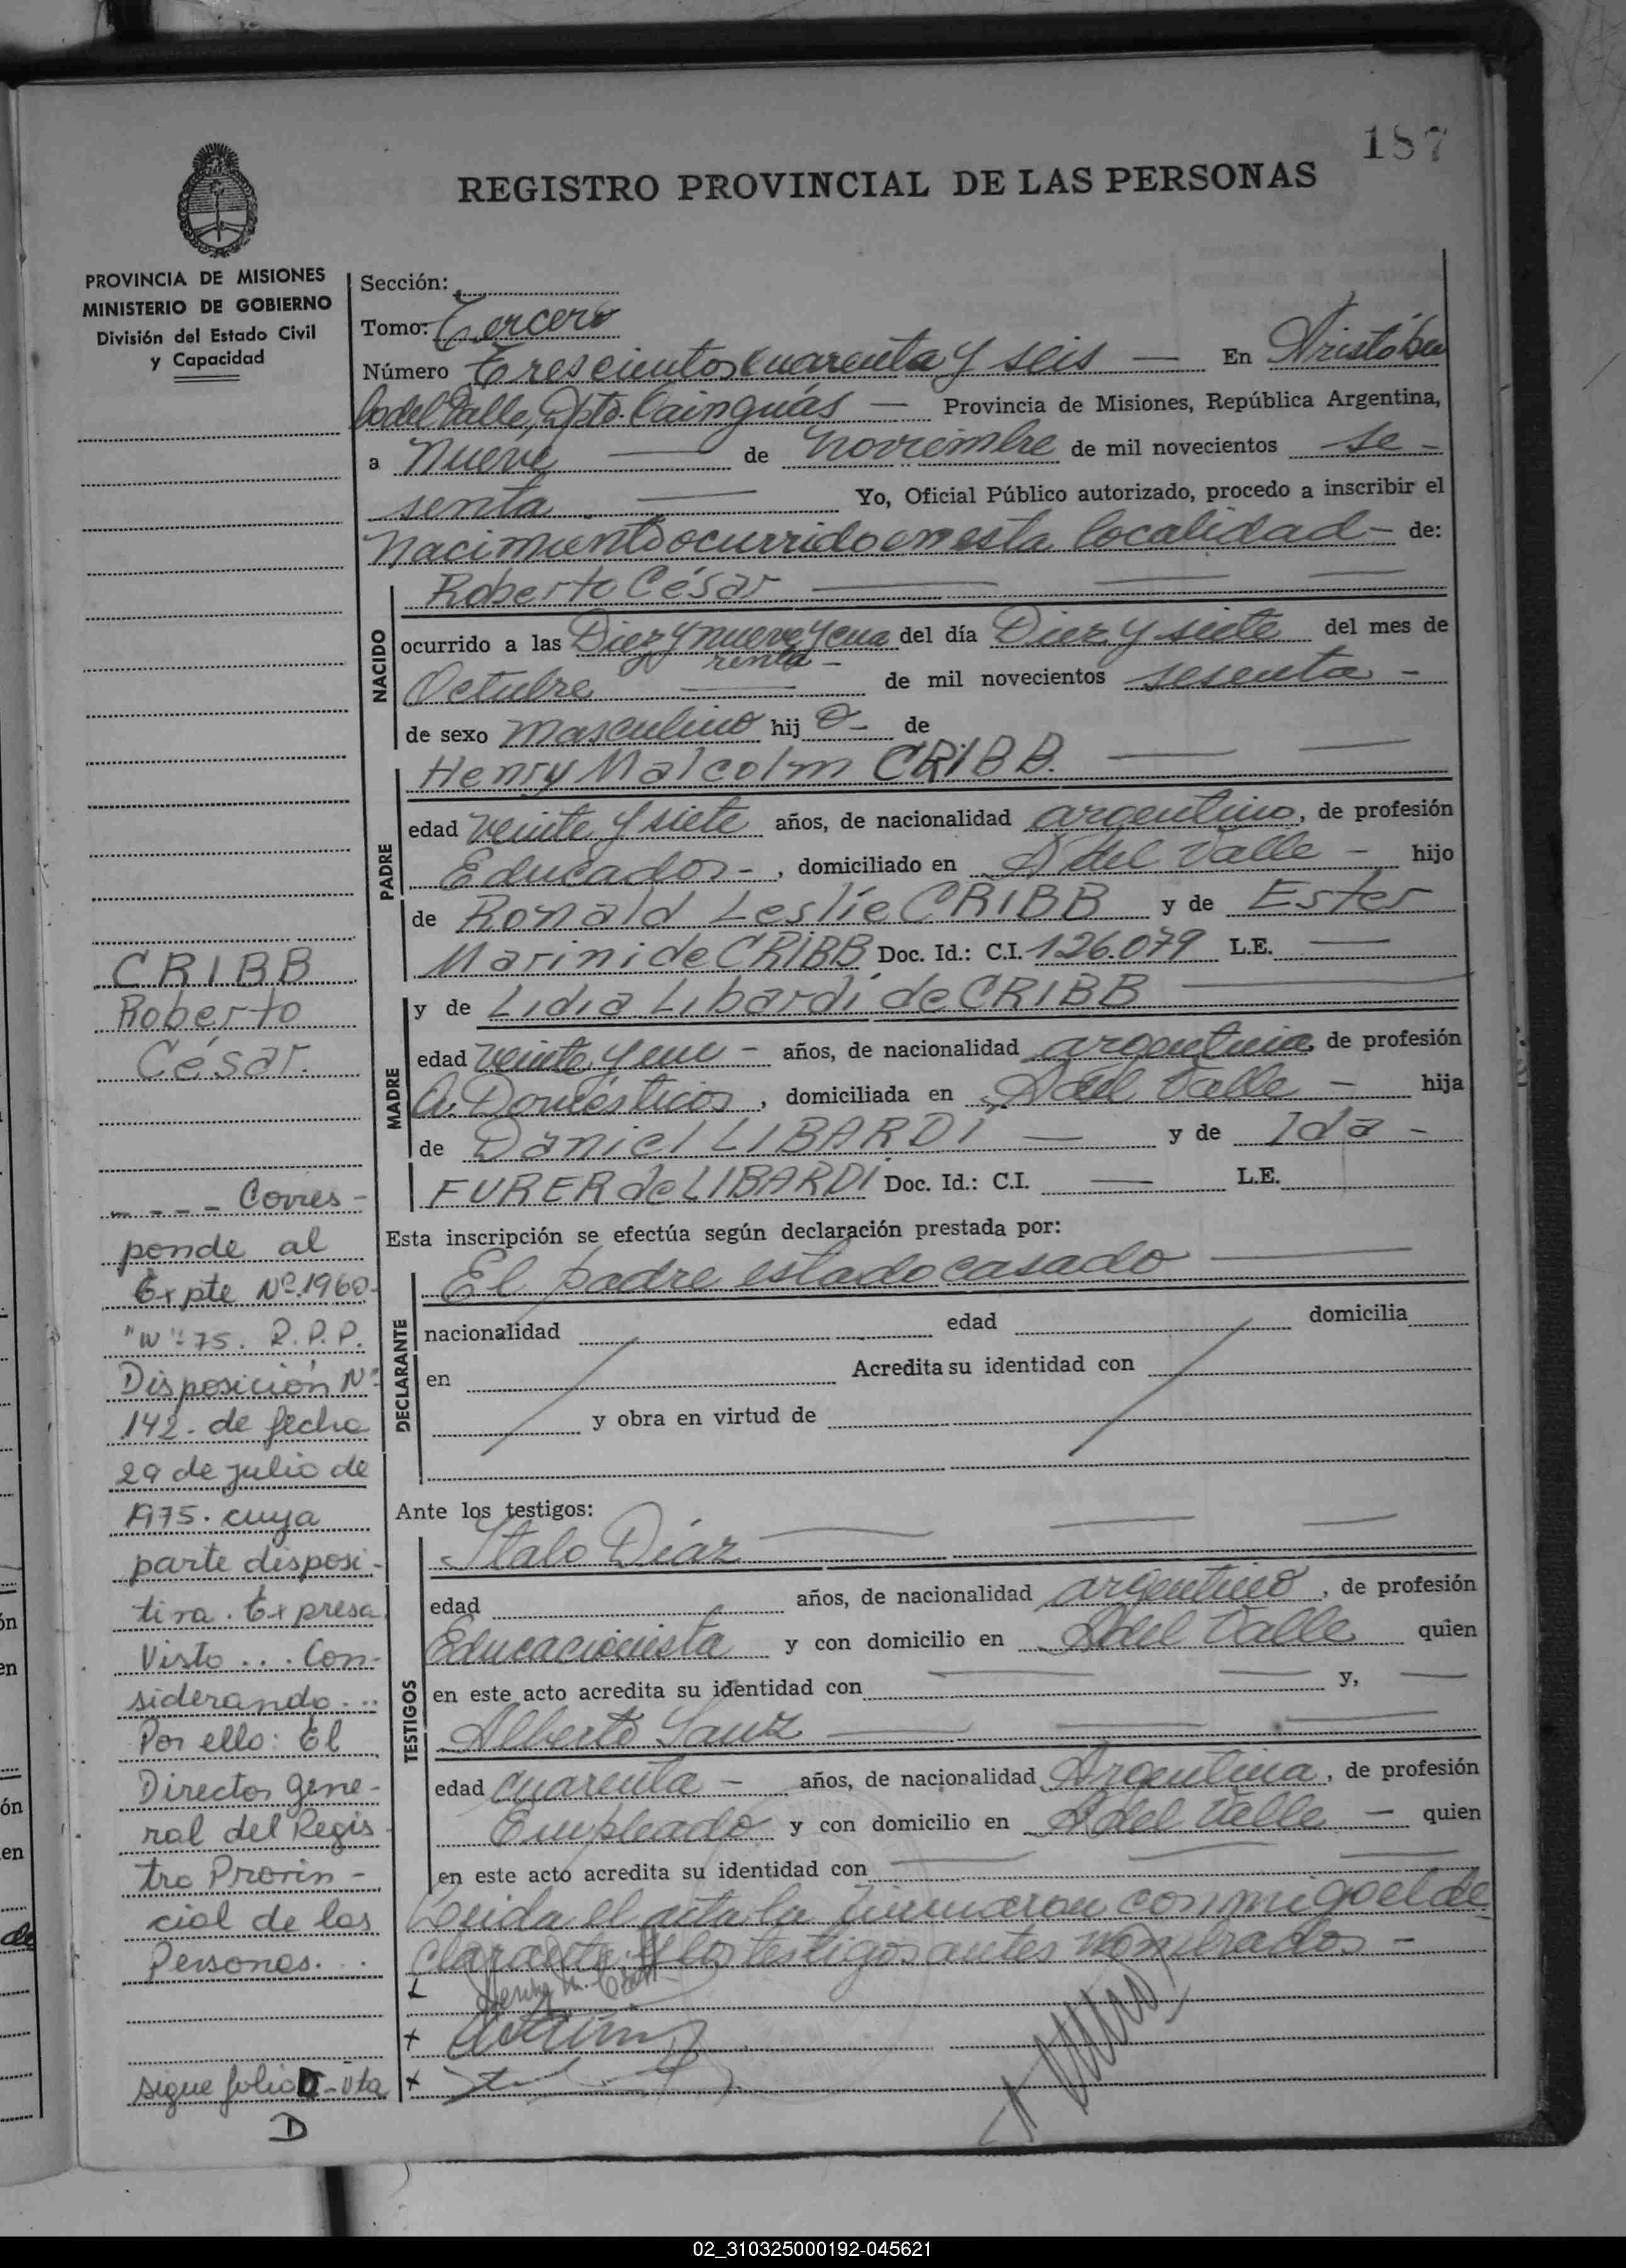 187
REGISTRO PROVINCIAL DE LAS PERSONAS
PROVINCIA DE MISIONES
MINISTERIO DE GOBIERNO
División del Estado Civil
y Capacidad
Sección:
Tomo: Tercero
Número Trescientos cuarenta y seis — En Aristóbu
lo del Valle, Dpto. Cainguás — Provincia de Misiones, República Argentina,
a Nueve — de noviembre de mil novecientos se-
senta — Yo, Oficial Público autorizado, procedo a inscribir el
Nacimiento ocurrido en esta localidad — de:
NACIDO
Roberto César
ocurrido a las Diez y nueve y cua del día Diez y siete del mes de
renta —
Octubre — de mil novecientos sesenta —
de sexo masculino hij o — de
PADRE
Henry Malcolm CRIBB.
edad veinte y siete años, de nacionalidad argentino, de profesión
Educador -, domiciliado en A del Valle — hijo
de Ronald Leslie CRIBB y de Ester
Marini de CRIBB Doc. Id.: C.I. 126.079 L.E. —
MADRE
y de Lidia Libardi de CRIBB
edad veinte y un — años, de nacionalidad argentina, de profesión
Q. Domésticos, domiciliada en A del Valle — hija
de Daniel LIBARDI — y de Ida —
FURER de LIBARDI Doc. Id.: C.I. — L.E.
Esta inscripción se efectúa según declaración prestada por:
DECLARANTE
El padre estado casado
nacionalidad edad domicilia
en Acredita su identidad con
y obra en virtud de
Ante los testigos:
TESTIGOS
Italo Diaz
edad años, de nacionalidad argentino, de profesión
Educacionista y con domicilio en A del Valle quien
en este acto acredita su identidad con — y, —
Alberto Sanz
edad cuarenta — años, de nacionalidad Argentina, de profesión
Empleado y con domicilio en A del Valle — quien
en este acto acredita su identidad con
Leida el acta la firmaron conmigo el de
clarante y los testigos antes nombrados —
Henry M. Cribb
CRIBB
Roberto
César.
- - - - Corres-
ponde al
Expte Nº 1960-
"W"-75. R.P.P.
Disposición Nº
142. de fecha
29 de julio de
1975. cuya
parte disposi-
tiva. Expresa
Visto... Con-
siderando...
Por ello: El
Director gene-
ral del Regis-
tro Provin-
cial de las
Personas...
sigue folio D-vta
D
02_310325000192-045621